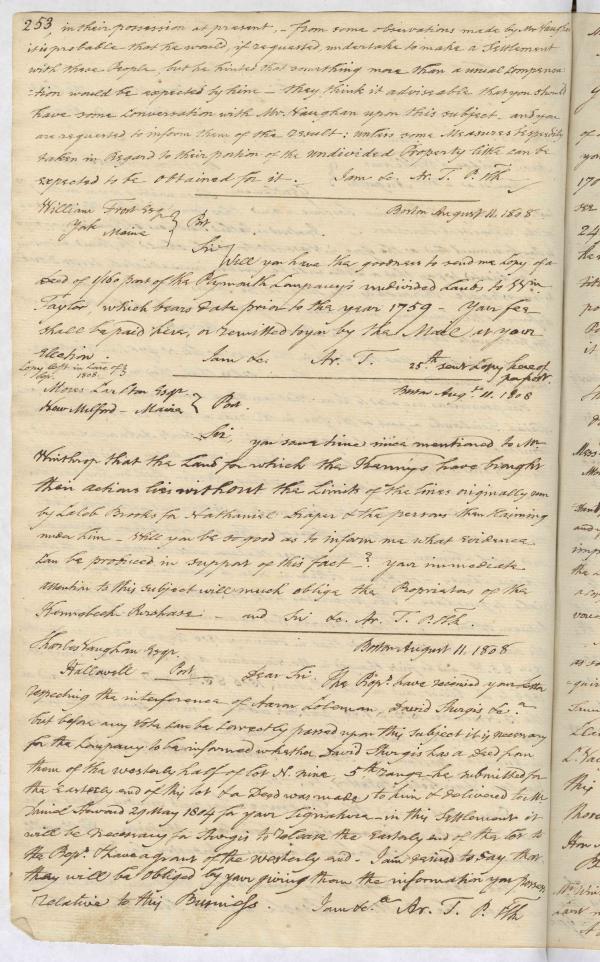 253, in their possession at present, – from some observations made by Mr. Vaughan
it is probable that he would, if requested, undertake to make a Settlement
with these People, but he hinted that something more than a usual Compensa
=tion would be expected by him – they think it adviseable that you should
have some Conversation with Mr. Vaughan upon this subject, and you
are requested to inform them of the result: unless some Measures is speedily
taken in Regard to their portion of the undivided Property little can be
expected to be obtained for it. I am &c. Ar. T. P.
William Frost Esqr. Boston August 11. 1808
York Maine } Post
Sir, Will you have the goodness to send me Copy of a
deed of 1/160 part of the Plymouth Company's undivided Lands to Wm.
Taylor which bears date prior to the year 1759 – Your fee
shall be paid here, or remitted to you by the Mail at your
Election. I am &c. Ar. T. 25th. sent Copy hereof
Copy left in Care of
1808. per post.
Moses Carlton Esqr. Boston Augt. 11. 1808
New Milford – Maine } Post.
Sir, you some time since mentioned to Mr
Winthrop that the Land for which the have brought
their actions lies without the Limits of the lines originally run
by Caleb Brooks for Nathaniel Draper & the persons then Claiming
under him – Will you be so good as to inform me what evidence
can be produced in support of this fact –? your immediate
attention to this subject will much oblige the Proprietors of the
Kennebeck Purchase – and Sir &c. Ar. T. P.
Charles Vaughan Esqr. Boston August 11. 1808
Hallowell – Post – Dear Sir. The Propr. have received your Letter
respecting the interference of Aaron Coleman, David Sturgis &c.
but before any Vote can be Correctly passed upon this Subject it is necessary
for the Company to be informed whether David Sturgis has a Deed from
them of the westerly half of lot N. nine, 5th. range – he submitted for
the Easterly end of this lot & a Deed was made to him & delivered to Mr
Howard 29 May 1804 for your Signature – in this Settlement it
will be necessary for Sturgis to release the Easterly end of the lot to
the Propr. & have a grant of the westerly end – I am desired to say that
they will be obliged by your giving them the information you possess
relative to this Business. I am &c. Ar. T. P.